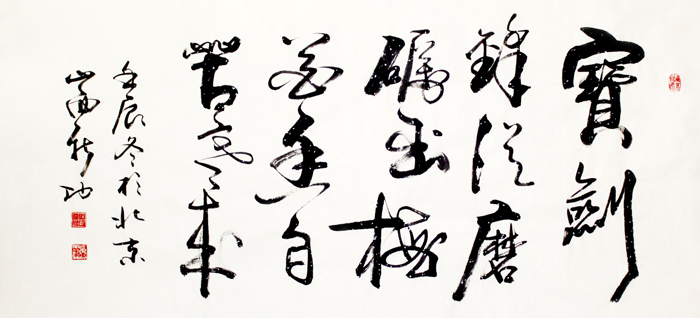 寶劍
鋒從磨
礪出梅
花香自
苦寒來
壬辰冬於北京
山西